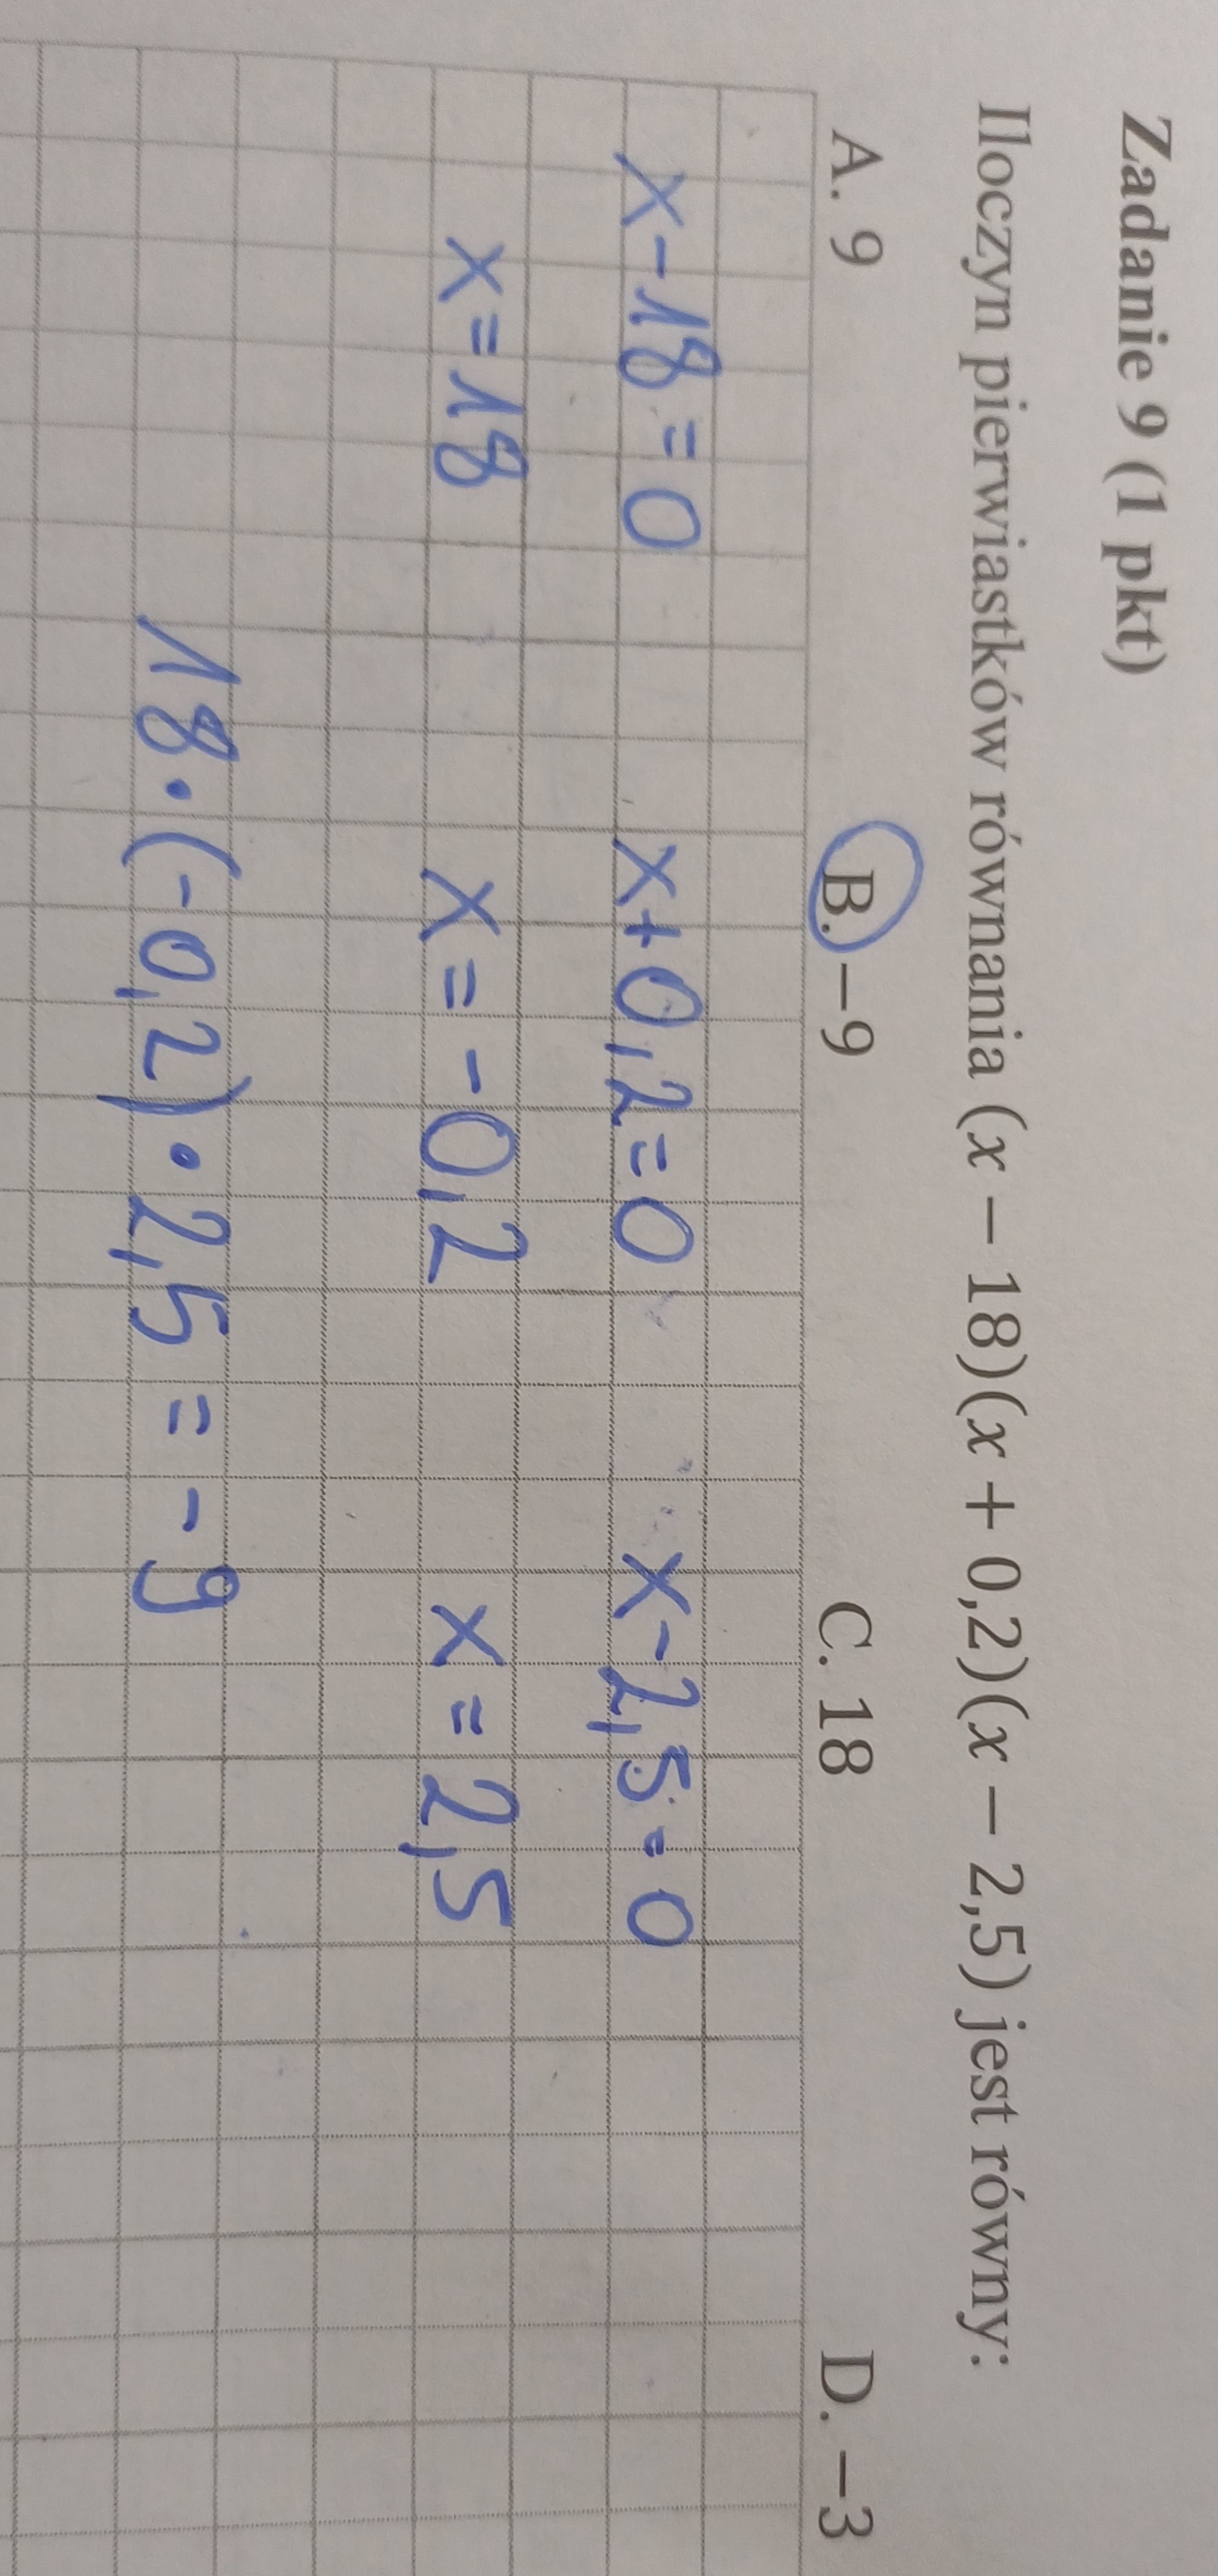 Zadanie 9 (1 pkt)
Iloczyn pierwiastków równania (x − 18)(x + 0,2)(x − 2,5) jest równy:
A. 9 B. −9 C. 18 D. −3
x-18=0 x+0,2=0 x-2,5=0
x=18 x=-0,2 x=2,5
18·(-0,2)·2,5=-9